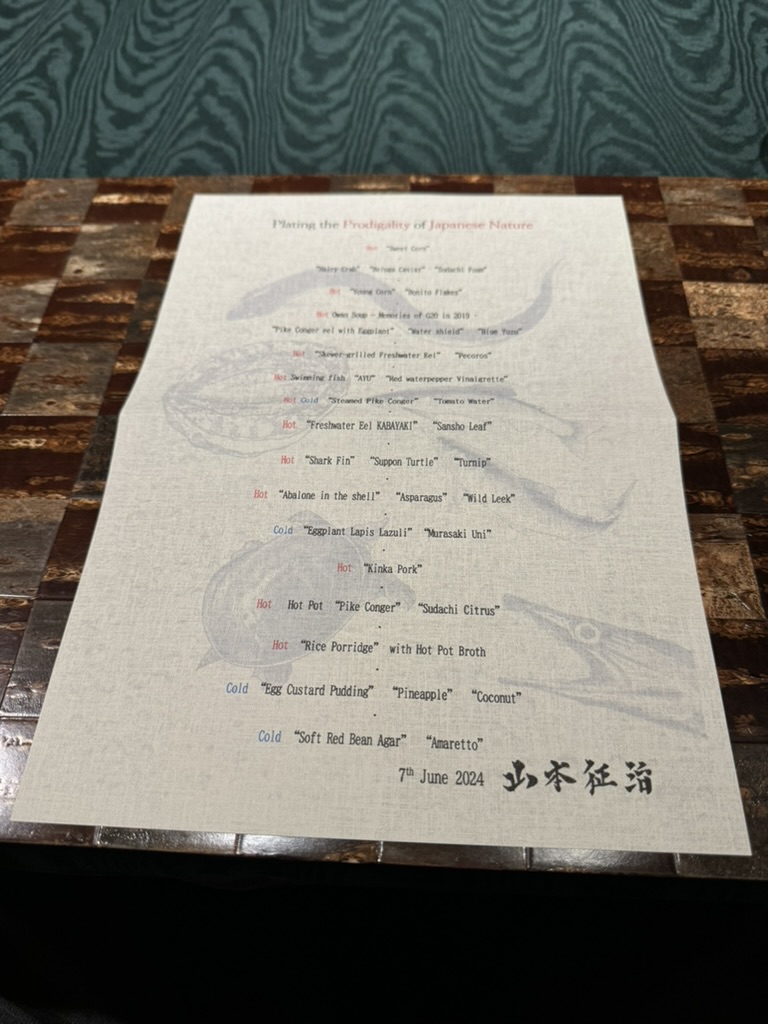 Plating the Prodigality of Japanese Nature
Hot "Sweet Corn"
"Hairy Crab" "Caviar" "Sudachi Foam"
Hot "Young Corn" "Bonito Flakes"
Hot Owan Soup - Memories of G20 in 2019 -
"Pike Conger eel with Eggplant" "Water shield" "Blue Yuzu"
Hot "Skewer-grilled Freshwater Eel" "Pecoros"
Hot Swimming fish "AYU" "Red waterpepper Vinaigrette"
Hot Cold "Steamed Pike Conger" "Tomato Water"
Hot "Freshwater Eel KABAYAKI" "Sansho Leaf"
Hot "Shark Fin" "Suppon Turtle" "Turnip"
Hot "Abalone in the shell" "Asparagus" "Wild Leek"
Cold "Eggplant Lapis Lazuli" "Murasaki Uni"
Hot "Kinka Pork"
Hot Hot Pot "Pike Conger" "Sudachi Citrus"
Hot "Rice Porridge" with Hot Pot Broth
Cold "Egg Custard Pudding" "Pineapple" "Coconut"
Cold "Soft Red Bean Agar" "Amaretto"
7th June 2024 山本征治